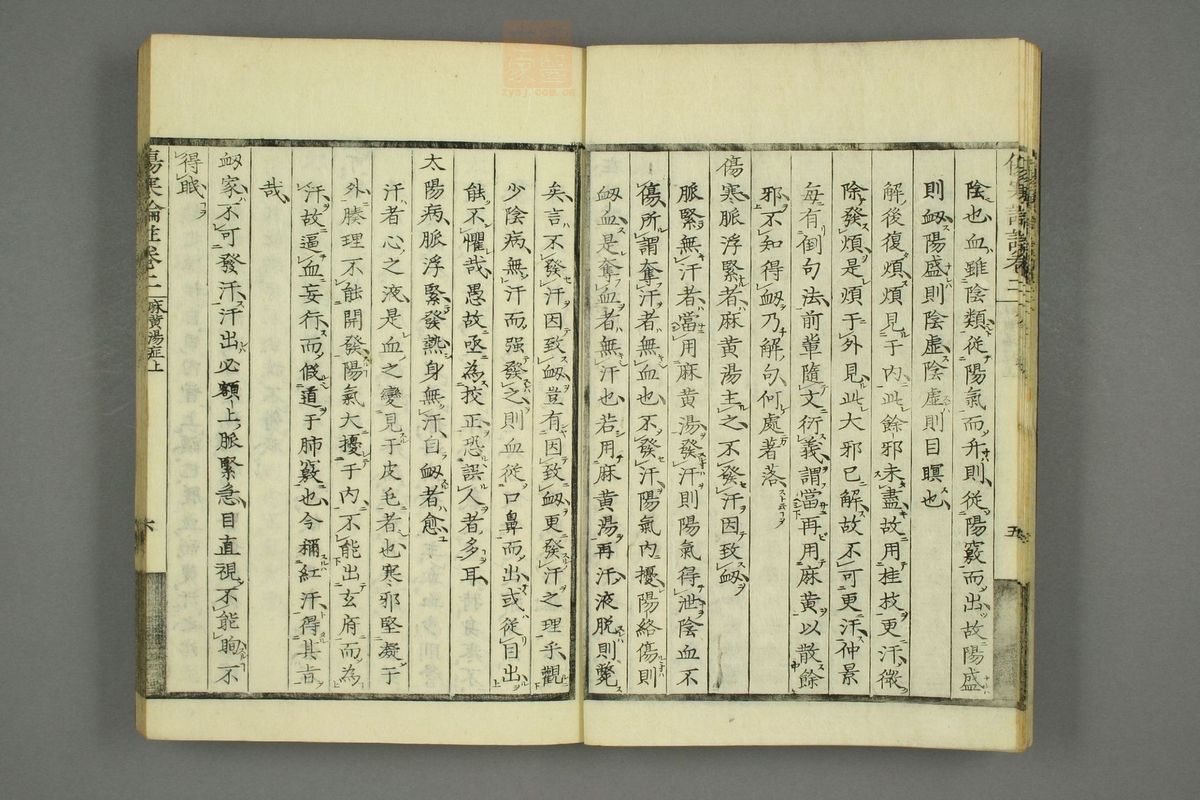 陰也血雖陰類從陽氣而升則從陽竅而出故陽盛
則衂陽盛則陰虛陰虛則目瞑也
解後復煩煩見于內此餘邪未盡故用桂枝更汗微
除發煩是煩于外見此大邪已解故不可更汗仲景
每有倒句法前輩隨文衍義謂當再用麻黄以散餘
邪不知得衂乃解句何處著落
傷寒脈浮緊者麻黄湯主之不發汗因致衂
脈緊無汗者當用麻黄湯發汗則陽氣得泄陰血不
傷所謂奪汗者無血也不發汗陽氣內擾陽絡傷則
衂血是奪血者無汗也若用麻黄湯再汗液脱則斃
五
矣言不發汗因致衂豈有因致衂更發汗之理乎觀
少陰病無汗而强發之則血從口鼻而出或從目出
能不懼哉愚故亟為挍正恐誤人者多耳
太陽病脈浮緊發熱身無汗自衂者愈
汗者心之液是血之變見于皮毛者也寒邪堅凝于
外腠理不能開發陽氣大擾于內不能出玄府而為
汗故逼血妄行而假道于肺竅也今稱紅汗得其旨
哉
衂家不可發汗汗出必額上脈緊急目直視不能眴不
得眠
傷寒論註卷二
麻黄湯症上
六